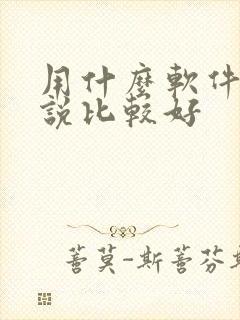 用什麼軟件
說比較好
蒼莫-斯蒼芬斯